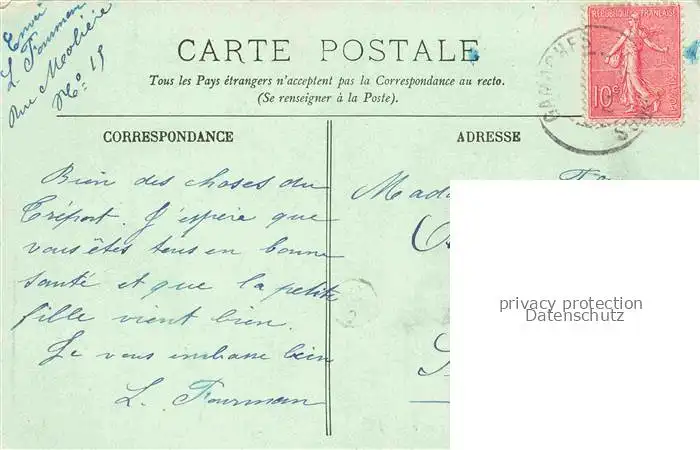 Envoi
L. Fourman
Rue Molière
No: 15
CARTE POSTALE
Tous les Pays étrangers n'acceptent pas la Correspondance au recto.
(Se renseigner à la Poste).
REPUBLIQUE FRANÇAISE
10c
CORRESPONDANCE
ADRESSE
Bien des choses du
Tréport. J'espère que
vous êtes tous en bonne
santé et que la petite
fille vient bien.
Je vous embrasse bien
L. Fourman
Mada
privacy protection
Datenschutz